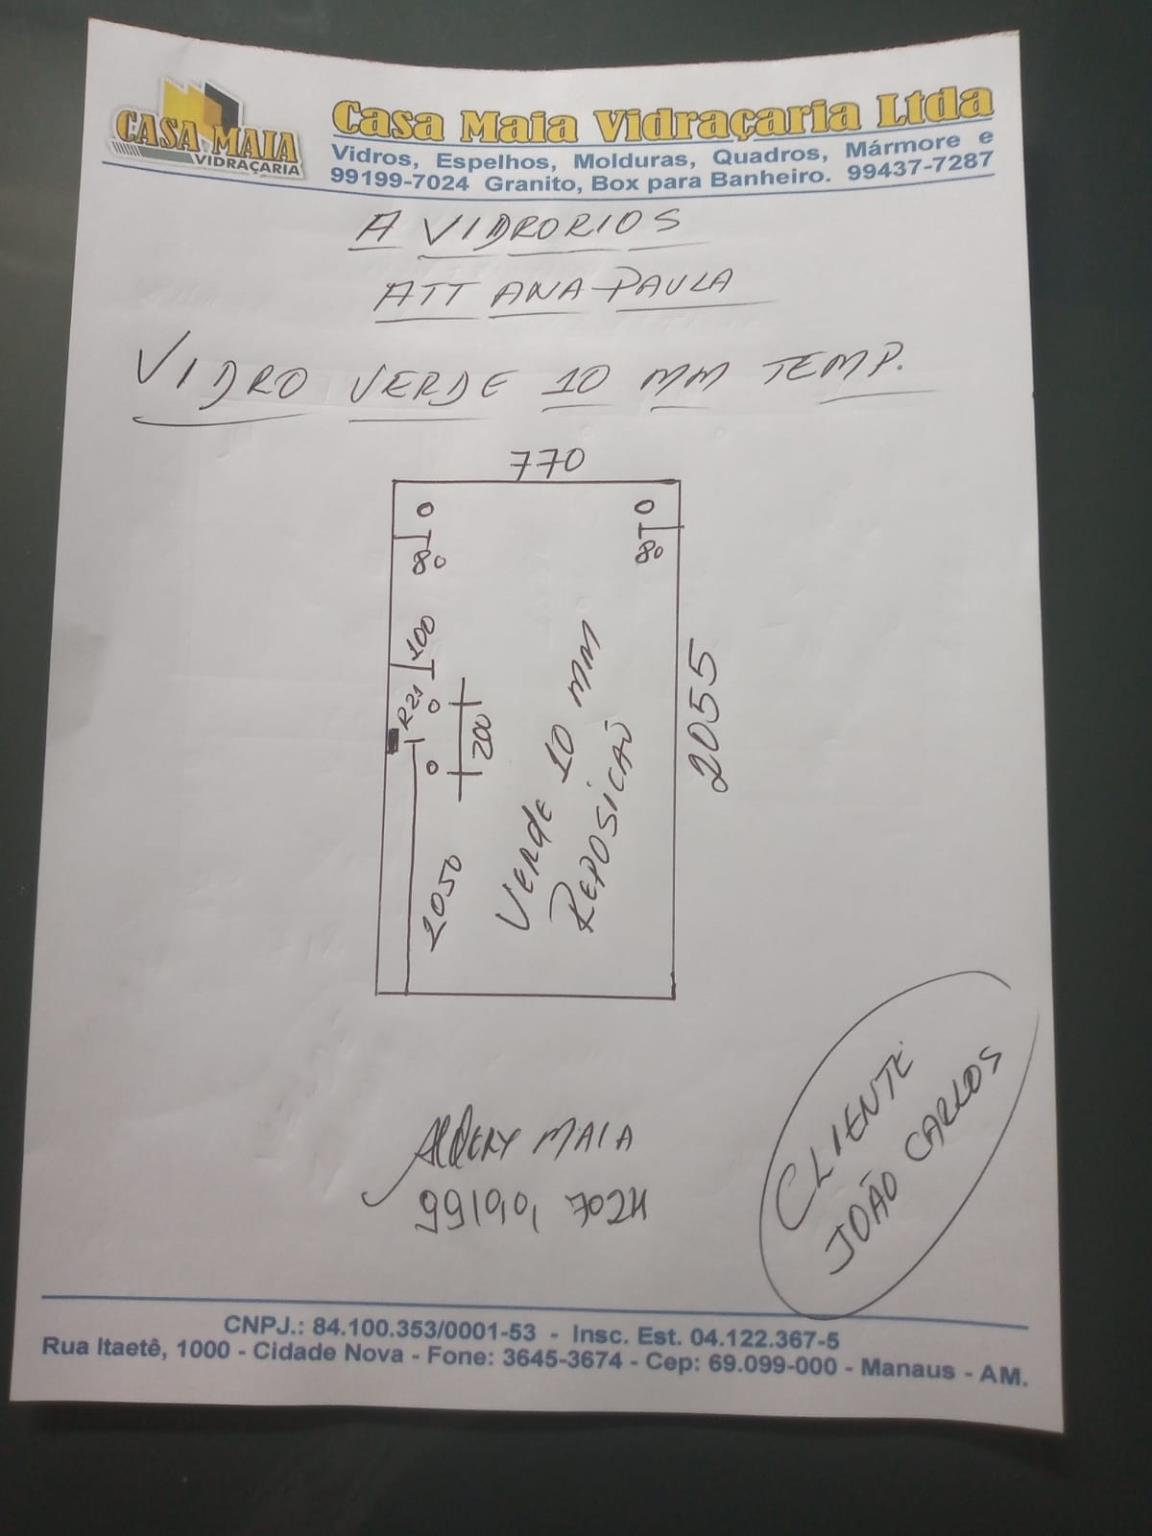 CASA MAIA
VIDRAÇARIA
Casa Maia Vidraçaria Ltda
Vidros, Espelhos, Molduras, Quadros, Mármore e
99199-7024 Granito, Box para Banheiro. 99437-7287
A VIDRORIOS
ATT ANA-PAULA
VIDRO VERDE 10 MM TEMP.
770
0 0
80 80
100
R21
0
200
0
1050
VERDE 10 MM
REPOSICAÕ
2055
ALDERY MAIA
7024
CLIENTE
JOÃO CARLOS
CNPJ.: 84.100.353/0001-53 - Insc. Est. 04.122.367-5
Rua Itaetê, 1000 - Cidade Nova - Fone: 3645-3674 - Cep: 69.099-000 - Manaus - AM.